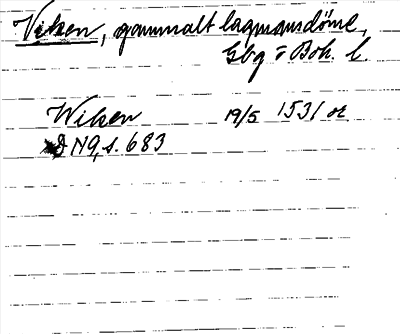 Viken, gammalt lagmansdöme,
Gbg o Boh. l.
Wiken 19/5 1531 or.
D N9, s. 683